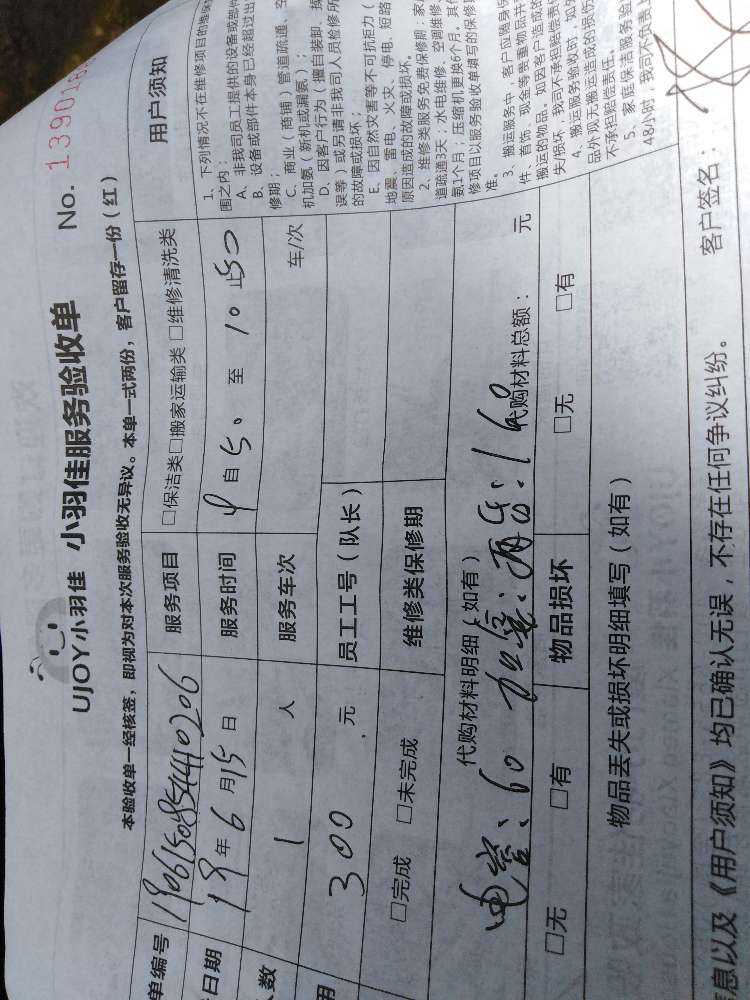 UJOY小羽佳 小羽佳服务验收单
No. 13901
本验收单一经核签，即视为对本次服务验收无异议。本单一式两份，客户留存一份（红）
单编号 服务项目 □保洁类□搬家运输类 □维修清洗类
日期 19年6月15日 服务时间 自 50 至 10 止50
人数 1 人 服务车次 车/次
用 300 元 员工工号（队长）
□完成 □未完成 维修类保修期
代购材料明细（如有） 代购材料总额： 元
60 160
□无 □有 物品损坏 □无 □有
物品丢失或损坏明细填写（如有）
息以及《用户须知》均已确认无误，不存在任何争议纠纷。 客户签名：
用户须知
1、下列情况不在维修项目的维保
围之内：
A、非我司员工提供的设备或部件
B、设备或部件本身已经超过出
修期；
C、商业（商铺）管道疏通、空
机加氨（新机或漏氨）；
D、因客户行为（擅自装卸、操
误等）或另请非我司人员检修所
的故障或损坏；
E、因自然灾害等不可抗拒力（
地震、雷电、火灾、停电、短路
原因造成的故障或损坏。
2、维修类服务免费保修期：家
道疏通3天；水电维修、空调维修、
氨1个月；压缩机更换6个月，其
修项目以服务验收单填写的保修
准。
3、搬运服务中，客户应随身
件、首饰、现金等贵重物品并
搬运的物品。如因客户造成的
失/损坏，我司不承担赔偿责任。
4、搬运服务验收时，如
品外观无搬运造成的损伤
不承担赔偿责任。
5、家庭保洁服务验
48小时，我司不负责